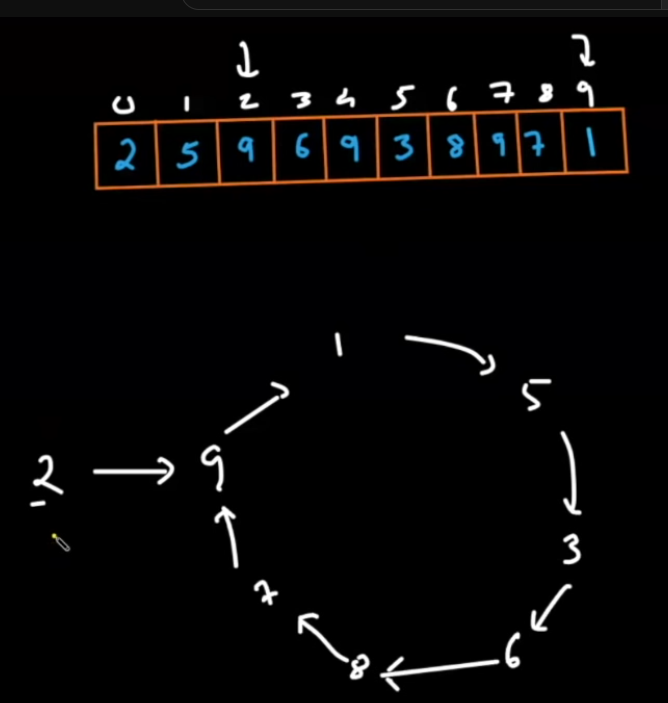 0 1 2 3 4 5 6 7 8 9
2 5 9 6 9 3 8 9 7 1
1
5
2 9
3
7
6
8